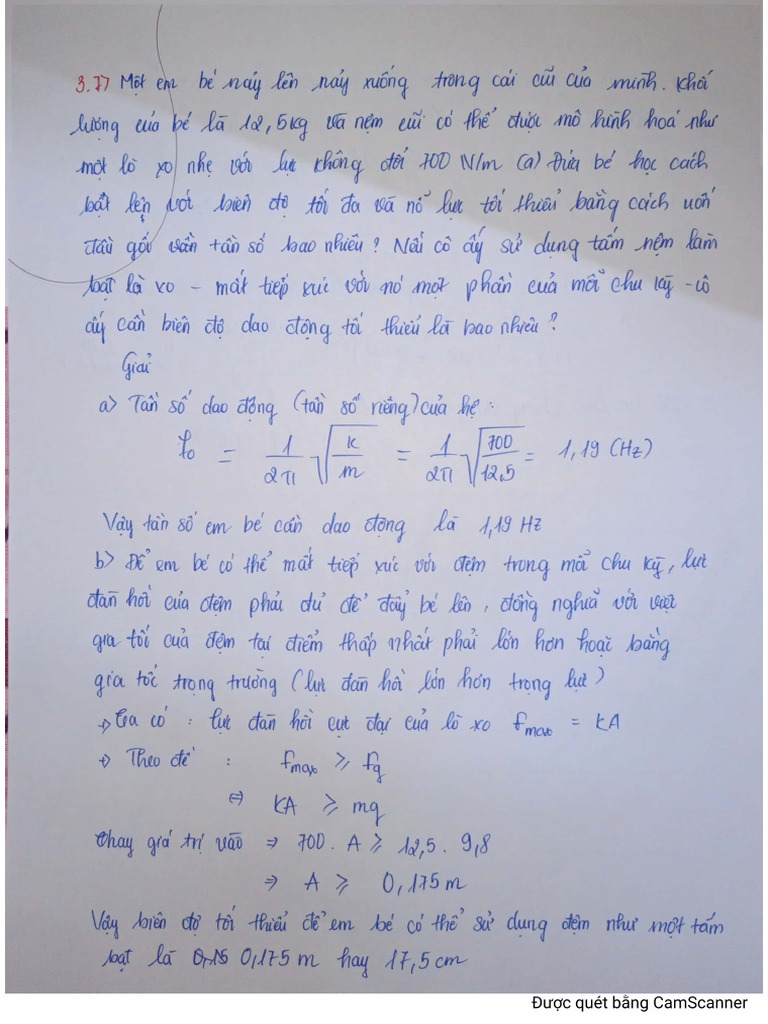 3.77 Một em bé nảy lên nảy xuống trong cái cũi của mình. Khối
lượng của bé là 12,5kg và nệm cũi có thể được mô hình hoá như
một lò xo nhẹ với lực không đổi 700 N/m (a) Đứa bé học cách
bật lên với biên độ tối đa và nỗ lực tối thiểu bằng cách uốn
đầu gối vần tần số bao nhiêu? Nếu cô ấy sử dụng tấm nệm làm
bạt là xo - mất tiếp xúc với nó một phần của mỗi chu kỳ - cô
ấy cần biên độ dao động tối thiểu là bao nhiêu?
Giải
a> Tần số dao động (tần số riêng) của hệ:
f₀ = 1/2π √(k/m) = 1/2π √(700/12,5) = 1,19 (Hz)
Vậy tần số em bé cần dao động là 1,19 Hz
b> Để em bé có thể mất tiếp xúc với đệm trong mỗi chu kỳ, lực
đàn hồi của đệm phải đủ để đẩy bé lên, đồng nghĩa với việc
gia tốc của đệm tại điểm thấp nhất phải lớn hơn hoặc bằng
gia tốc trọng trường (lực đàn hồi lớn hơn trọng lực)
+> Ta có : lực đàn hồi cực đại của lò xo fmax = KA
+> Theo đề : fmax ⩾ fg
⇔ KA ⩾ mg
Thay giá trị vào ⇒ 700 . A ⩾ 12,5 . 9,8
⇒ A ⩾ 0,175 m
Vậy biên độ tối thiểu để em bé có thể sử dụng đệm như một tấm
bạt là 0,175 m hay 17,5 cm
Được quét bằng CamScanner